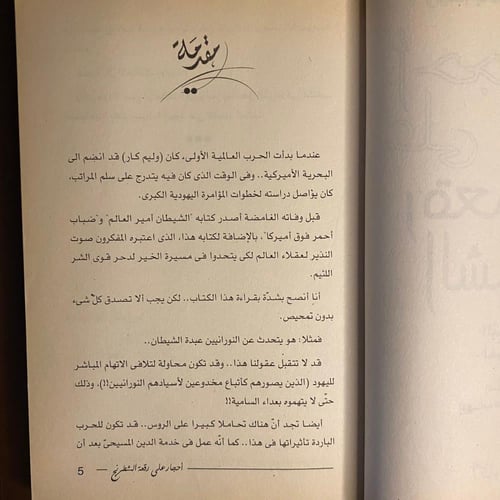 مقدمة
عندما بدأت الحرب العالمية الأولى، كان (وليم كار) قد انضم الى
البحرية الأميركية.. وفى الوقت الذى كان فيه يتدرج على سلم المراتب،
كان يؤاصل دراسته لخطوات المؤامرة اليهودية الكبرى.
قبل وفاته الغامضة أصدر كتابه "الشيطان أمير العالم" و"ضباب
أحمر فوق أميركا"، بالإضافة لكتابه هذا، الذى اعتبره المفكرون صوت
النذير لعقلاء العالم لكى يتحدوا فى مسيرة الخير لدحر قوى الشر
اللئيم.
أنا أنصح بشدّة بقراءة هذا الكتاب.. لكن يجب ألا تصدق كلّ شىء
بدون تمحيص.
فمثلا: هو يتحدث عن النورانيين عبدة الشيطان..
قد لا تتقبل عقولنا هذا.. وقد تكون محاولة لتلافى الاتهام المباشر
لليهود (الذين يصورهم كأتباع مخدوعين لأسيادهم النورانيين!!)، وذلك
حتّى لا يتهموه بعداء السامية!!
أيضا تجد أنّ هناك تحاملا كبيرا على الروس.. قد تكون للحرب
الباردة تأثيراتها فى هذا.. كما أنّه عمل فى خدمة الدين المسيحىّ بعد أن
أحجار على رقعة الشطرنج — 5